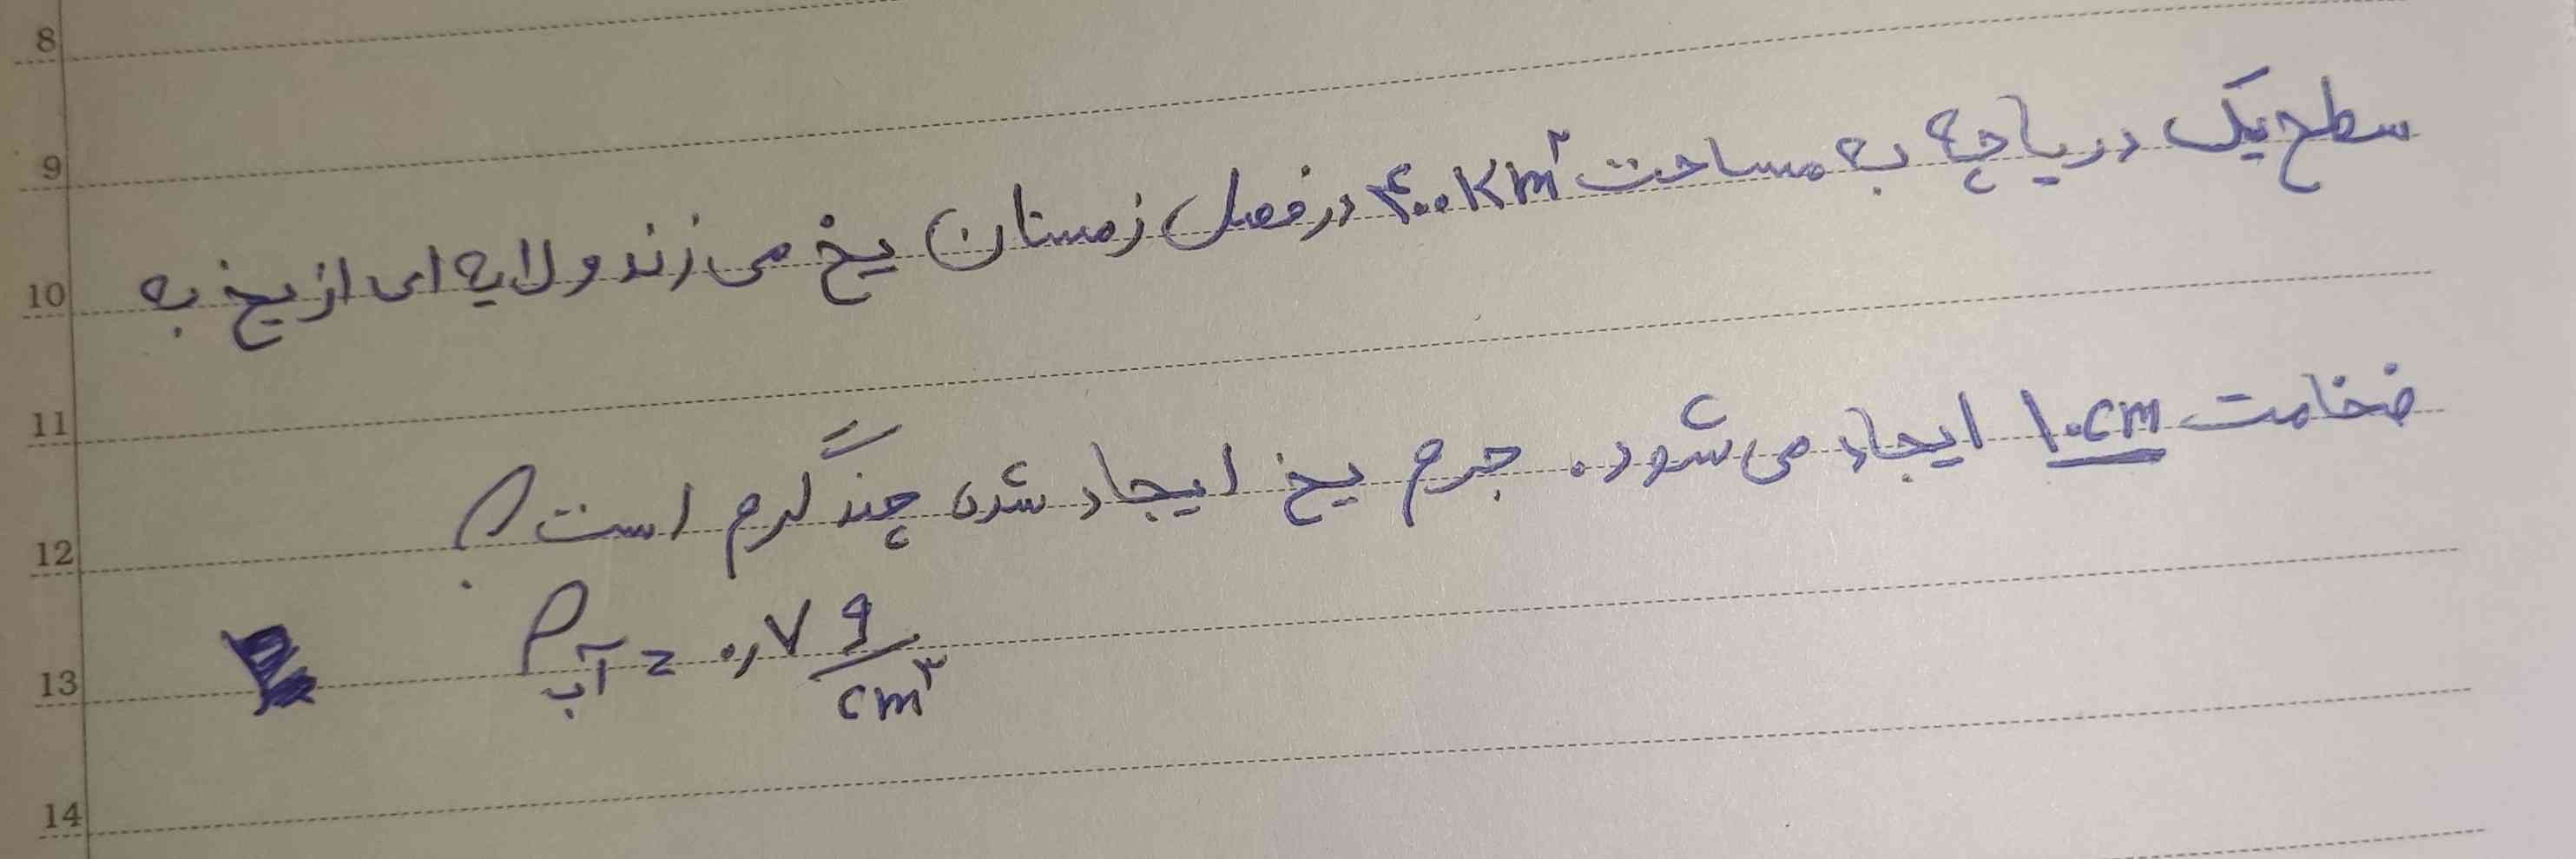 8
9
سطح یک دریاچه به مساحت ۴۰۰ Km² در فصل زمستان یخ می زند و لایه ای از یخ به
10
11
ضخامت ۱۰ cm ایجاد می شود. جرم یخ ایجاد شده چند گرم است؟
12
ρ آب = ۰٫۷ g/cm³
13
14